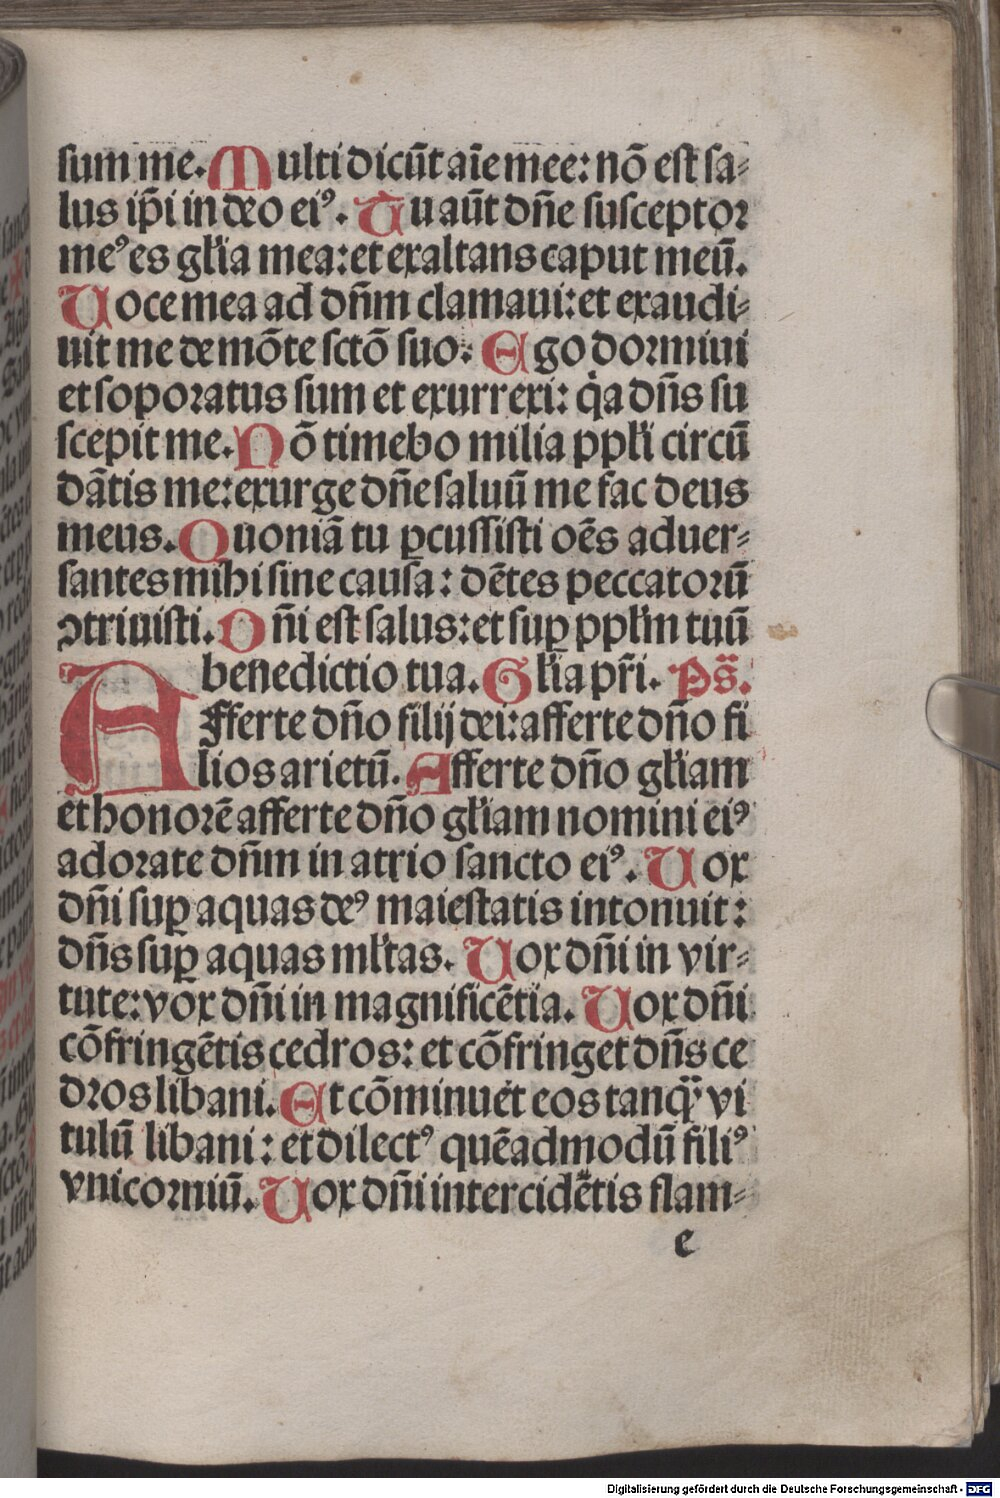 sum me. Multi dicūt aīe mee: nō est sa⸗
lus ip̄i in deo eiꝰ. Tu aūt dn̄e susceptor
meꝰ es gl̄ia mea: et exaltans caput meū.
Uoce mea ad dn̄m clamaui: et exaudi⸗
uit me de mōte sctō suo. Ego dormiui
et soporatus sum et exurrexi: qͥa dn̄s su
scepit me. Nō timebo milia ppl̄i circū
dātis me: exurge dn̄e saluū me fac deus
meus. Quoniā tu ꝑcussisti oēs aduer⸗
santes mihi sine causa: dētes peccatorū
ꝯtriuisti. Dn̄i est salus: et suꝑ ppl̄m tuū
benedictio tua. Gl̄ia pr̄i. Ps̄.
Afferte dn̄o filij dei: afferte dn̄o fi
lios arietū. Afferte dn̄o gl̄iam
et honorē afferte dn̄o gl̄iam nomini eiꝰ
adorate dn̄m in atrio sancto eiꝰ. Uox
dn̄i suꝑ aquas deꝰ maiestatis intonuit:
dn̄s suꝑ aquas ml̄tas. Uox dn̄i in vir⸗
tute: vox dn̄i in magnificētia. Uox dn̄i
cōfringētis cedros: et cōfringet dn̄s ce
dros libani. Et cōminuet eos tanqꝫ vi
tulū libani: et dilectꝰ quēadmodū filiꝰ
vnicorniū. Uox dn̄i intercidētis flam⸗
e
Digitalisierung gefördert durch die Deutsche Forschungsgemeinschaft - DFG